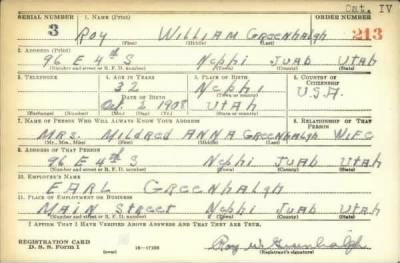 Cat. IV
SERIAL NUMBER 1. NAME (Print) ORDER NUMBER
3 ROY WILLIAM GREENHALGH 213
(First) (Middle) (Last)
2. ADDRESS (Print)
96 E 4th S Nephi JUAB UTAH
(Number and street or R. F. D. number) (Town) (County) (State)
3. TELEPHONE 4. AGE IN YEARS 5. PLACE OF BIRTH 6. COUNTRY OF CITIZENSHIP
32 Nephi
DATE OF BIRTH (Town or county)
Oct. 2 1908 UTAH U.S.A.
(Exchange) (Number) (Mo.) (Day) (Yr.) (State or country)
7. NAME OF PERSON WHO WILL ALWAYS KNOW YOUR ADDRESS 8. RELATIONSHIP OF THAT PERSON
MRS. MILDRED ANNA GREENHALGH WIFE
(Mr., Mrs., Miss) (First) (Middle) (Last)
9. ADDRESS OF THAT PERSON
96 E 4th S Nephi JUAB UTAH
(Number and street or R. F. D. number) (Town) (County) (State)
10. EMPLOYER'S NAME
EARL GREENHALGH
11. PLACE OF EMPLOYMENT OR BUSINESS
MAIN STREET Nephi JUAB UTAH
(Number and street or R. F. D. number) (Town) (County) (State)
I AFFIRM THAT I HAVE VERIFIED ABOVE ANSWERS AND THAT THEY ARE TRUE.
REGISTRATION CARD
D. S. S. Form 1 (over) 16—17105 Roy W. Greenhalgh
(Registrant's signature)